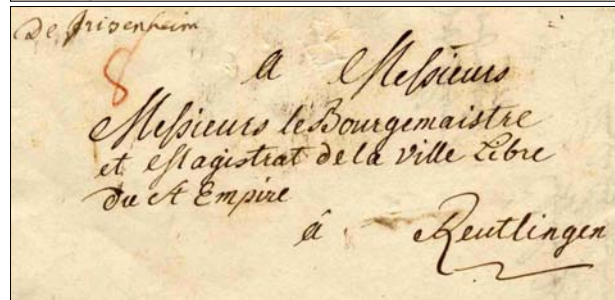 De Frisenheim
8
A Messieurs
Messieurs le Bourgemaistre
et Magistrat de la Ville Libre
du St Empire
à Reutlingen